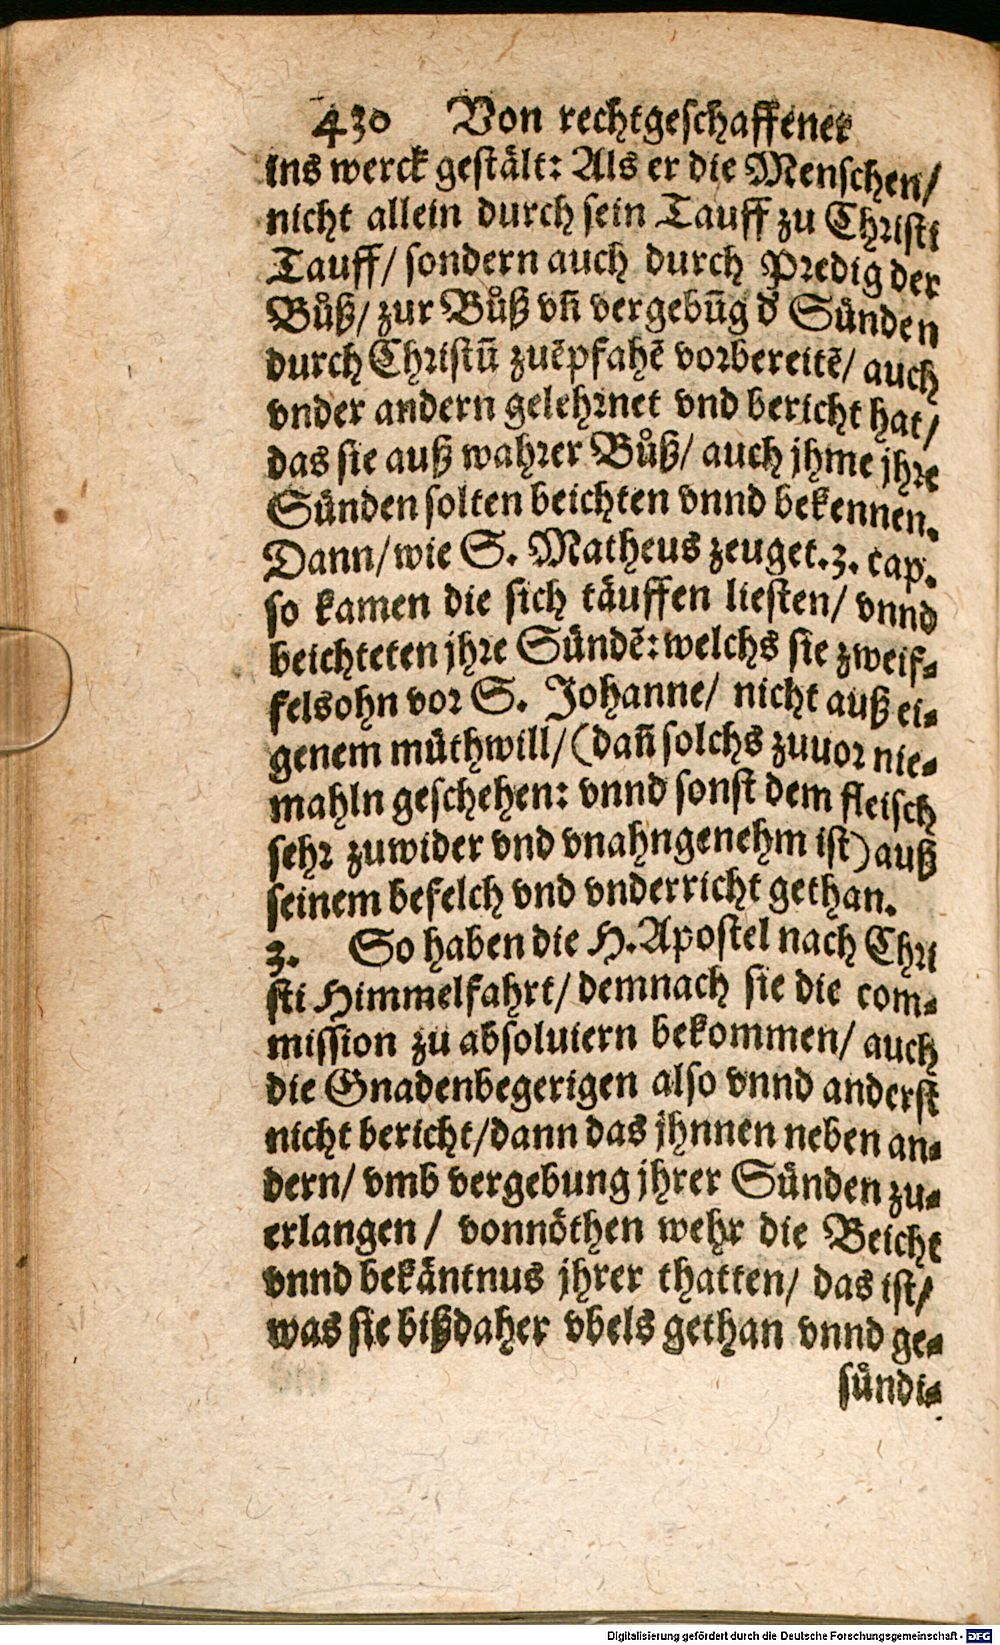 430 Von rechtgeschaffener
ins werck gestält: Als er die Menschen/
nicht allein durch sein Tauff zu Christi
Tauff/ sondern auch durch Predig der
Bůß/ zur Bůß vñ vergebũg d' Sünden
durch Christũ zuẽpfahẽ vorbereitẽ/ auch
vnder andern gelehrnet vnd bericht hat/
das sie auß wahrer Bůß/ auch jhme jhre
Sünden solten beichten vnnd bekennen.
Dann/ wie S. Matheus zeuget. 3. cap.
so kamen die sich täuffen liesten/ vnnd
beichteten jhre Sündẽ: welchs sie zweif-
felsohn vor S. Johanne/ nicht auß ei-
genem můthwill/ (dañ solchs zuuor nie-
mahln geschehen: vnnd sonst dem fleisch
sehr zuwider vnd vnahngenehm ist) auß
seinem befelch vnd vnderricht gethan.
3. So haben die H. Apostel nach Chri
sti Himmelfahrt/ demnach sie die com-
mission zu absoluiern bekommen/ auch
die Gnadenbegerigen also vnnd anderst
nicht bericht/ dann das jhnnen neben an-
dern/ vmb vergebung jhrer Sünden zu-
erlangen/ vonnöthen wehr die Beicht
vnnd bekäntnus jhrer thatten/ das ist/
was sie bißdaher vbels gethan vnnd ge-
sündi-
Digitalisierung gefördert durch die Deutsche Forschungsgemeinschaft - DFG